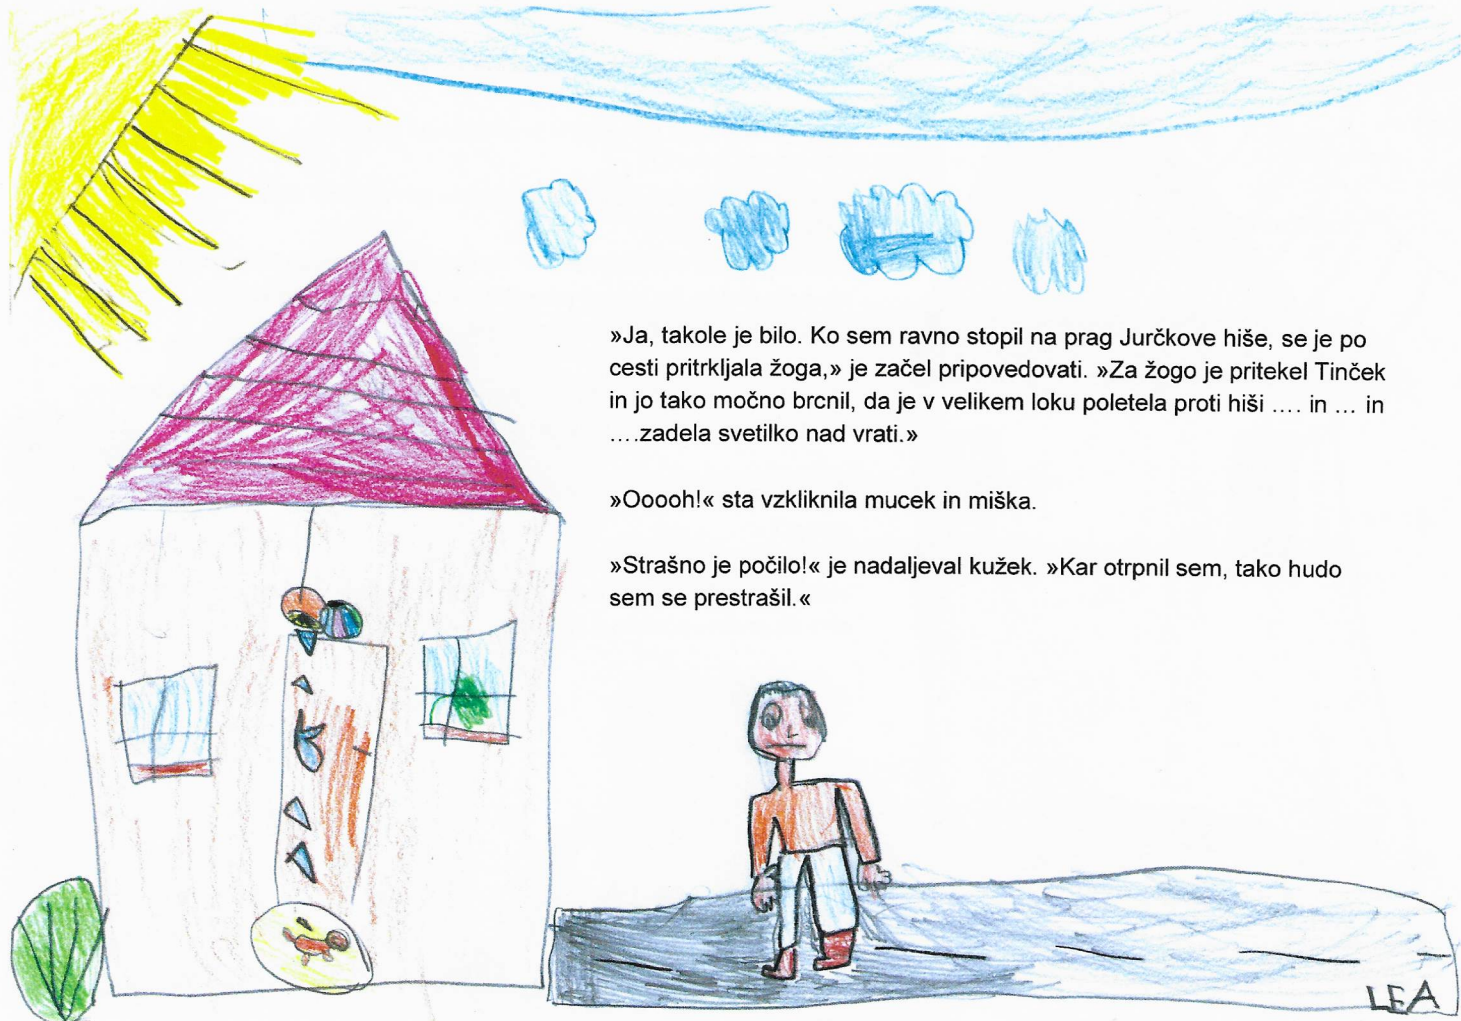 »Ja, takole je bilo. Ko sem ravno stopil na prag Jurčkove hiše, se je po
cesti pritrkljala žoga,» je začel pripovedovati. »Za žogo je pritekel Tinček
in jo tako močno brcnil, da je v velikem loku poletela proti hiši .... in ... in
....zadela svetilko nad vrati.»
»Ooooh!« sta vzkliknila mucek in miška.
»Strašno je počilo!« je nadaljeval kužek. »Kar otrpnil sem, tako hudo
sem se prestrašil.«
LEA